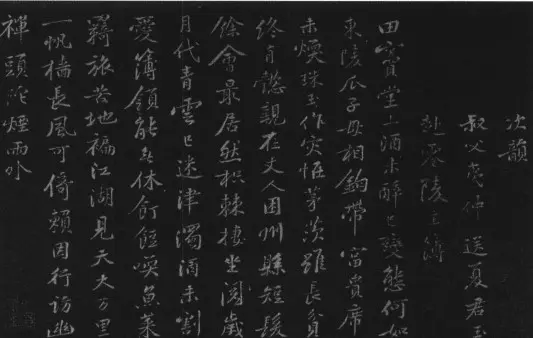 次韻
叔父夷仲送夏君玉
赴零陵主簿
田竇堂上酒未醉已變態何如
東陵瓜子母相鉤帶當貴席
未煖珠玉作災怪茅茨雖長貧
終有懿親在丈人困州縣短髮
餘會最居然枳棘棲坐閱歲
月代青雲已迷津濁酒未割
愛簿領能無休飣餖喚魚菜
羈旅苦地褊江湖見天大万里
一帆檣長風可倚賴因行訪幽
禪頭陀煙雨外